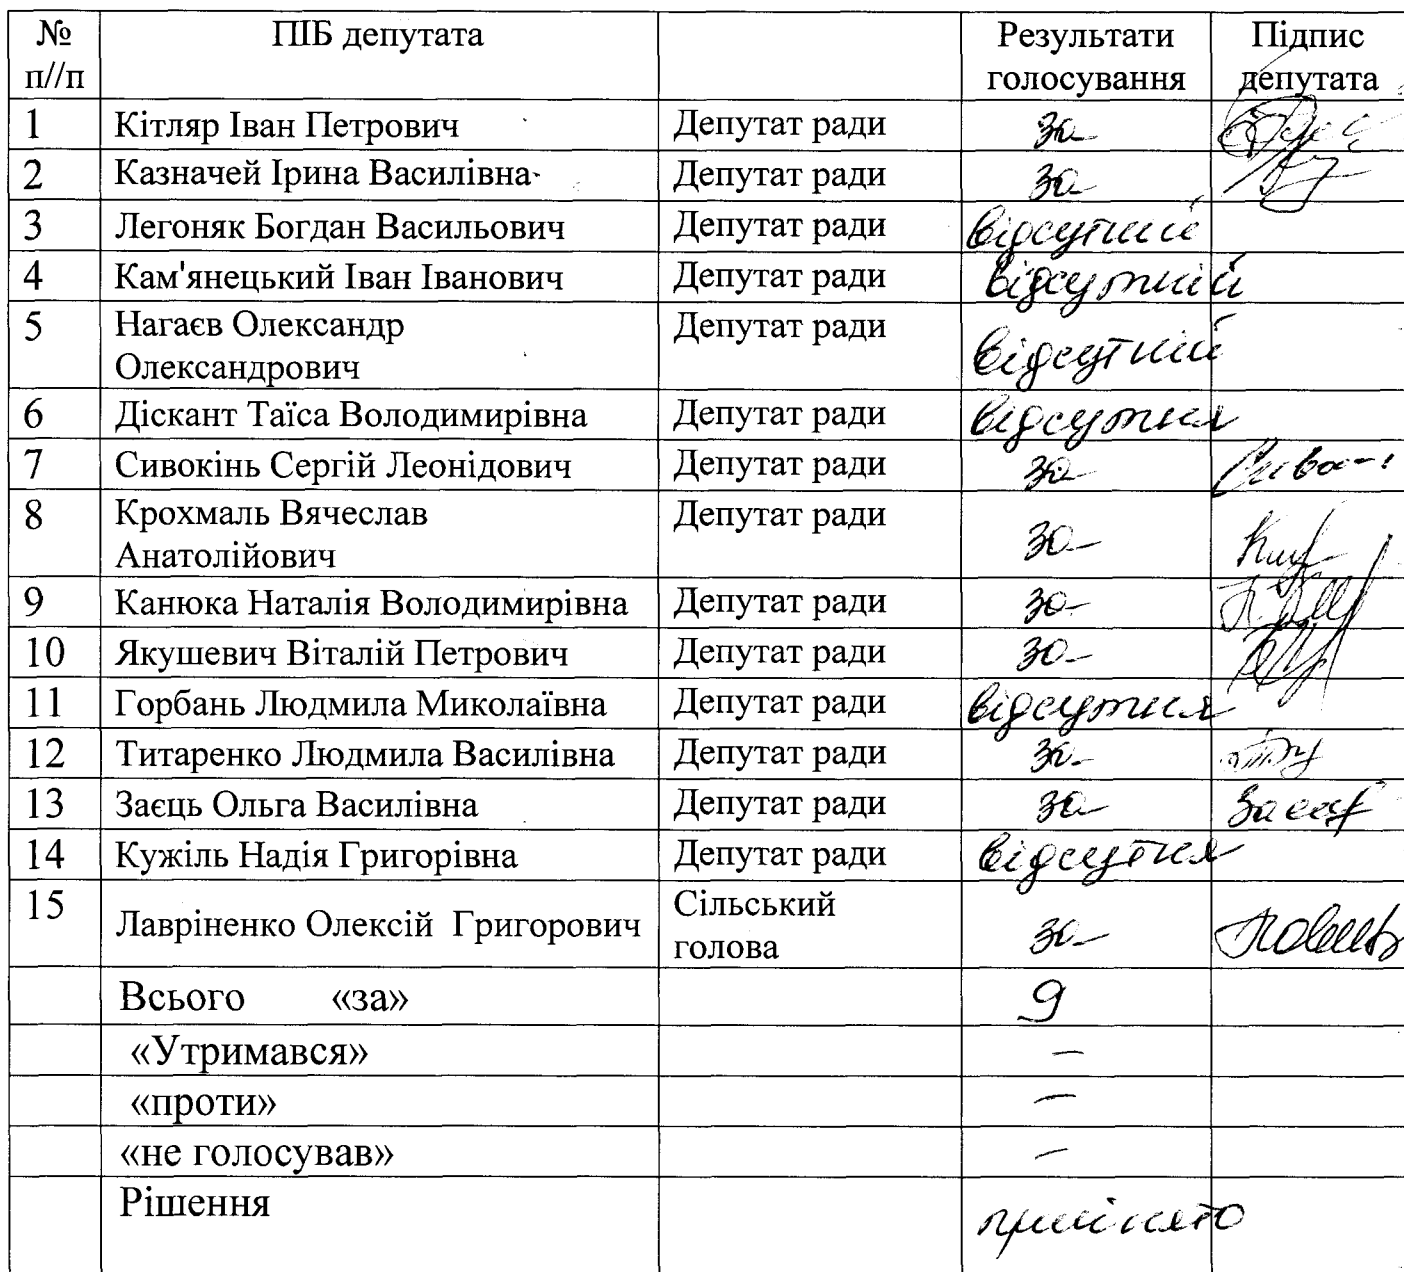 № п//п ПІБ депутата Результати голосування Підпис депутата
1 Кітляр Іван Петрович Депутат ради за
2 Казначей Ірина Василівна Депутат ради за
3 Легоняк Богдан Васильович Депутат ради відсутній
4 Кам'янецький Іван Іванович Депутат ради відсутній
5 Нагаєв Олександр Олександрович Депутат ради відсутній
6 Діскант Таїса Володимирівна Депутат ради відсутня
7 Сивокінь Сергій Леонідович Депутат ради за
8 Крохмаль Вячеслав Анатолійович Депутат ради за
9 Канюка Наталія Володимирівна Депутат ради за
10 Якушевич Віталій Петрович Депутат ради за
11 Горбань Людмила Миколаївна Депутат ради відсутня
12 Титаренко Людмила Василівна Депутат ради за
13 Заєць Ольга Василівна Депутат ради за
14 Кужіль Надія Григорівна Депутат ради відсутня
15 Лавріненко Олексій Григорович Сільський голова за
Всього «за» 9
«Утримався» –
«проти» –
«не голосував» –
Рішення прийнято